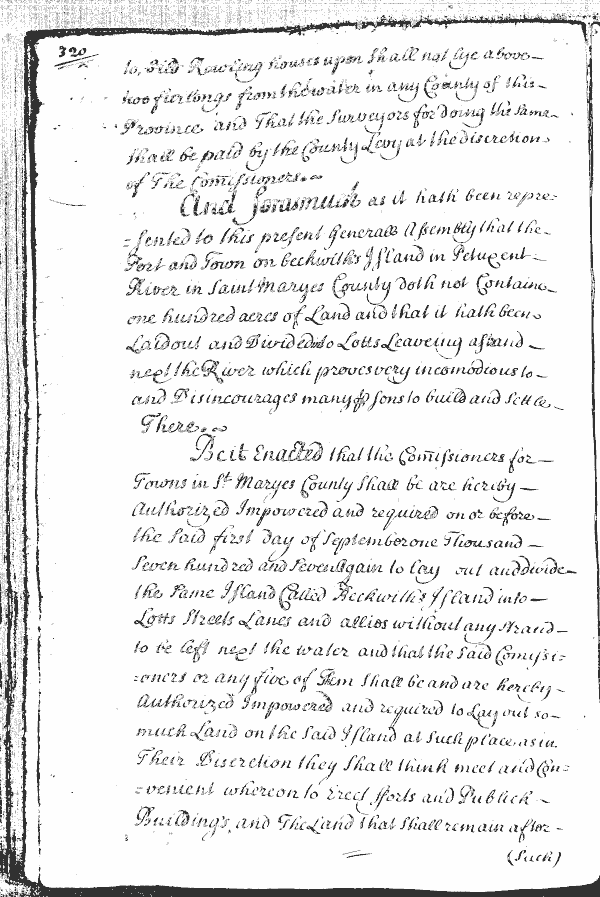 320
to, bild Rowling houses upon shall not lye above
two furlongs from the water in any County of this
Province and That the Surveyors for doing the same
shall be paid by the County Levy at the discretion
of The Comissioners.
And forasmuch as it hath been repre=
=sented to this present Generall Assembly that the
Port and Town on Beckwith's Island in Petuxent
River in Saint Maryes County doth not Containe
one hundred acres of Land and that it hath been
Laidout and Divided to Lotts Leaveing a strand
next the River which proves very incomodious to
and Disincourages many psons to build and settle
There.
Be it Enacted that the Comissioners for
Towns in St. Maryes County shall be are hereby
Authorized Impowered and required on or before
the said first day of September one Thousand
Seven hundred and Seven Again to lay out and divide
the same Island Called Beckwith's Island into
Lotts Streets Lanes and allies without any strand
to be left next the water and that the said Comissi=
=oners or any five of Them shall be and are hereby
Authorized Impowered and required to Lay out so
much Land on the said Island at such place as in
Their Discretion they shall think meet and Con=
=venient whereon to Erect fforts and Publick
Buildings, and The Land that shall remain after
(Such)